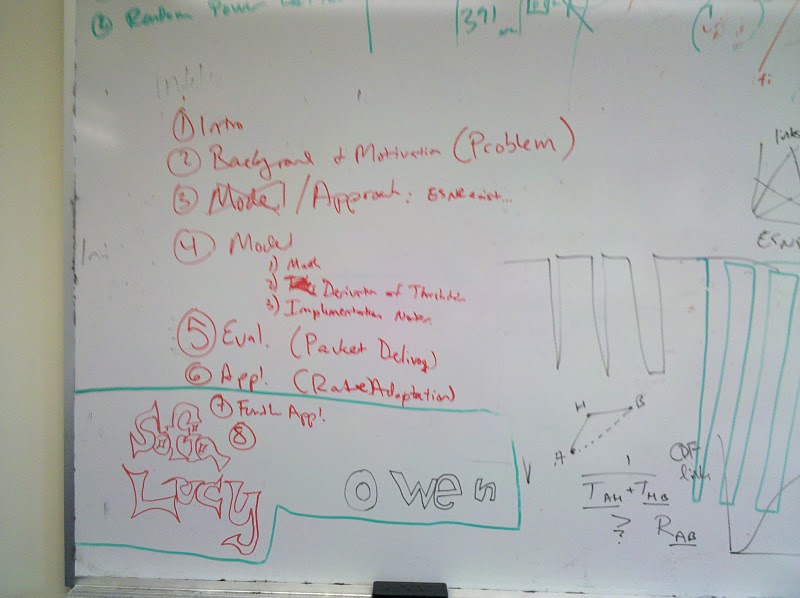 ② Random Power
391
① Intro
② Background & Motivation (Problem)
③ Model / Approach: ESNR exist...
④ Model
1) Math
2) Derivation of Thresholds
3) Implementation Notes
⑤ Eval. (Packet Delivery)
⑥ App! (Rate Adaptation)
⑦ Further App!
⑧
Stefan
Lucy
Owen
H
B
A
1
T_AH + T_HB
≥?
R_AB
CDF
link
ESNR
ti